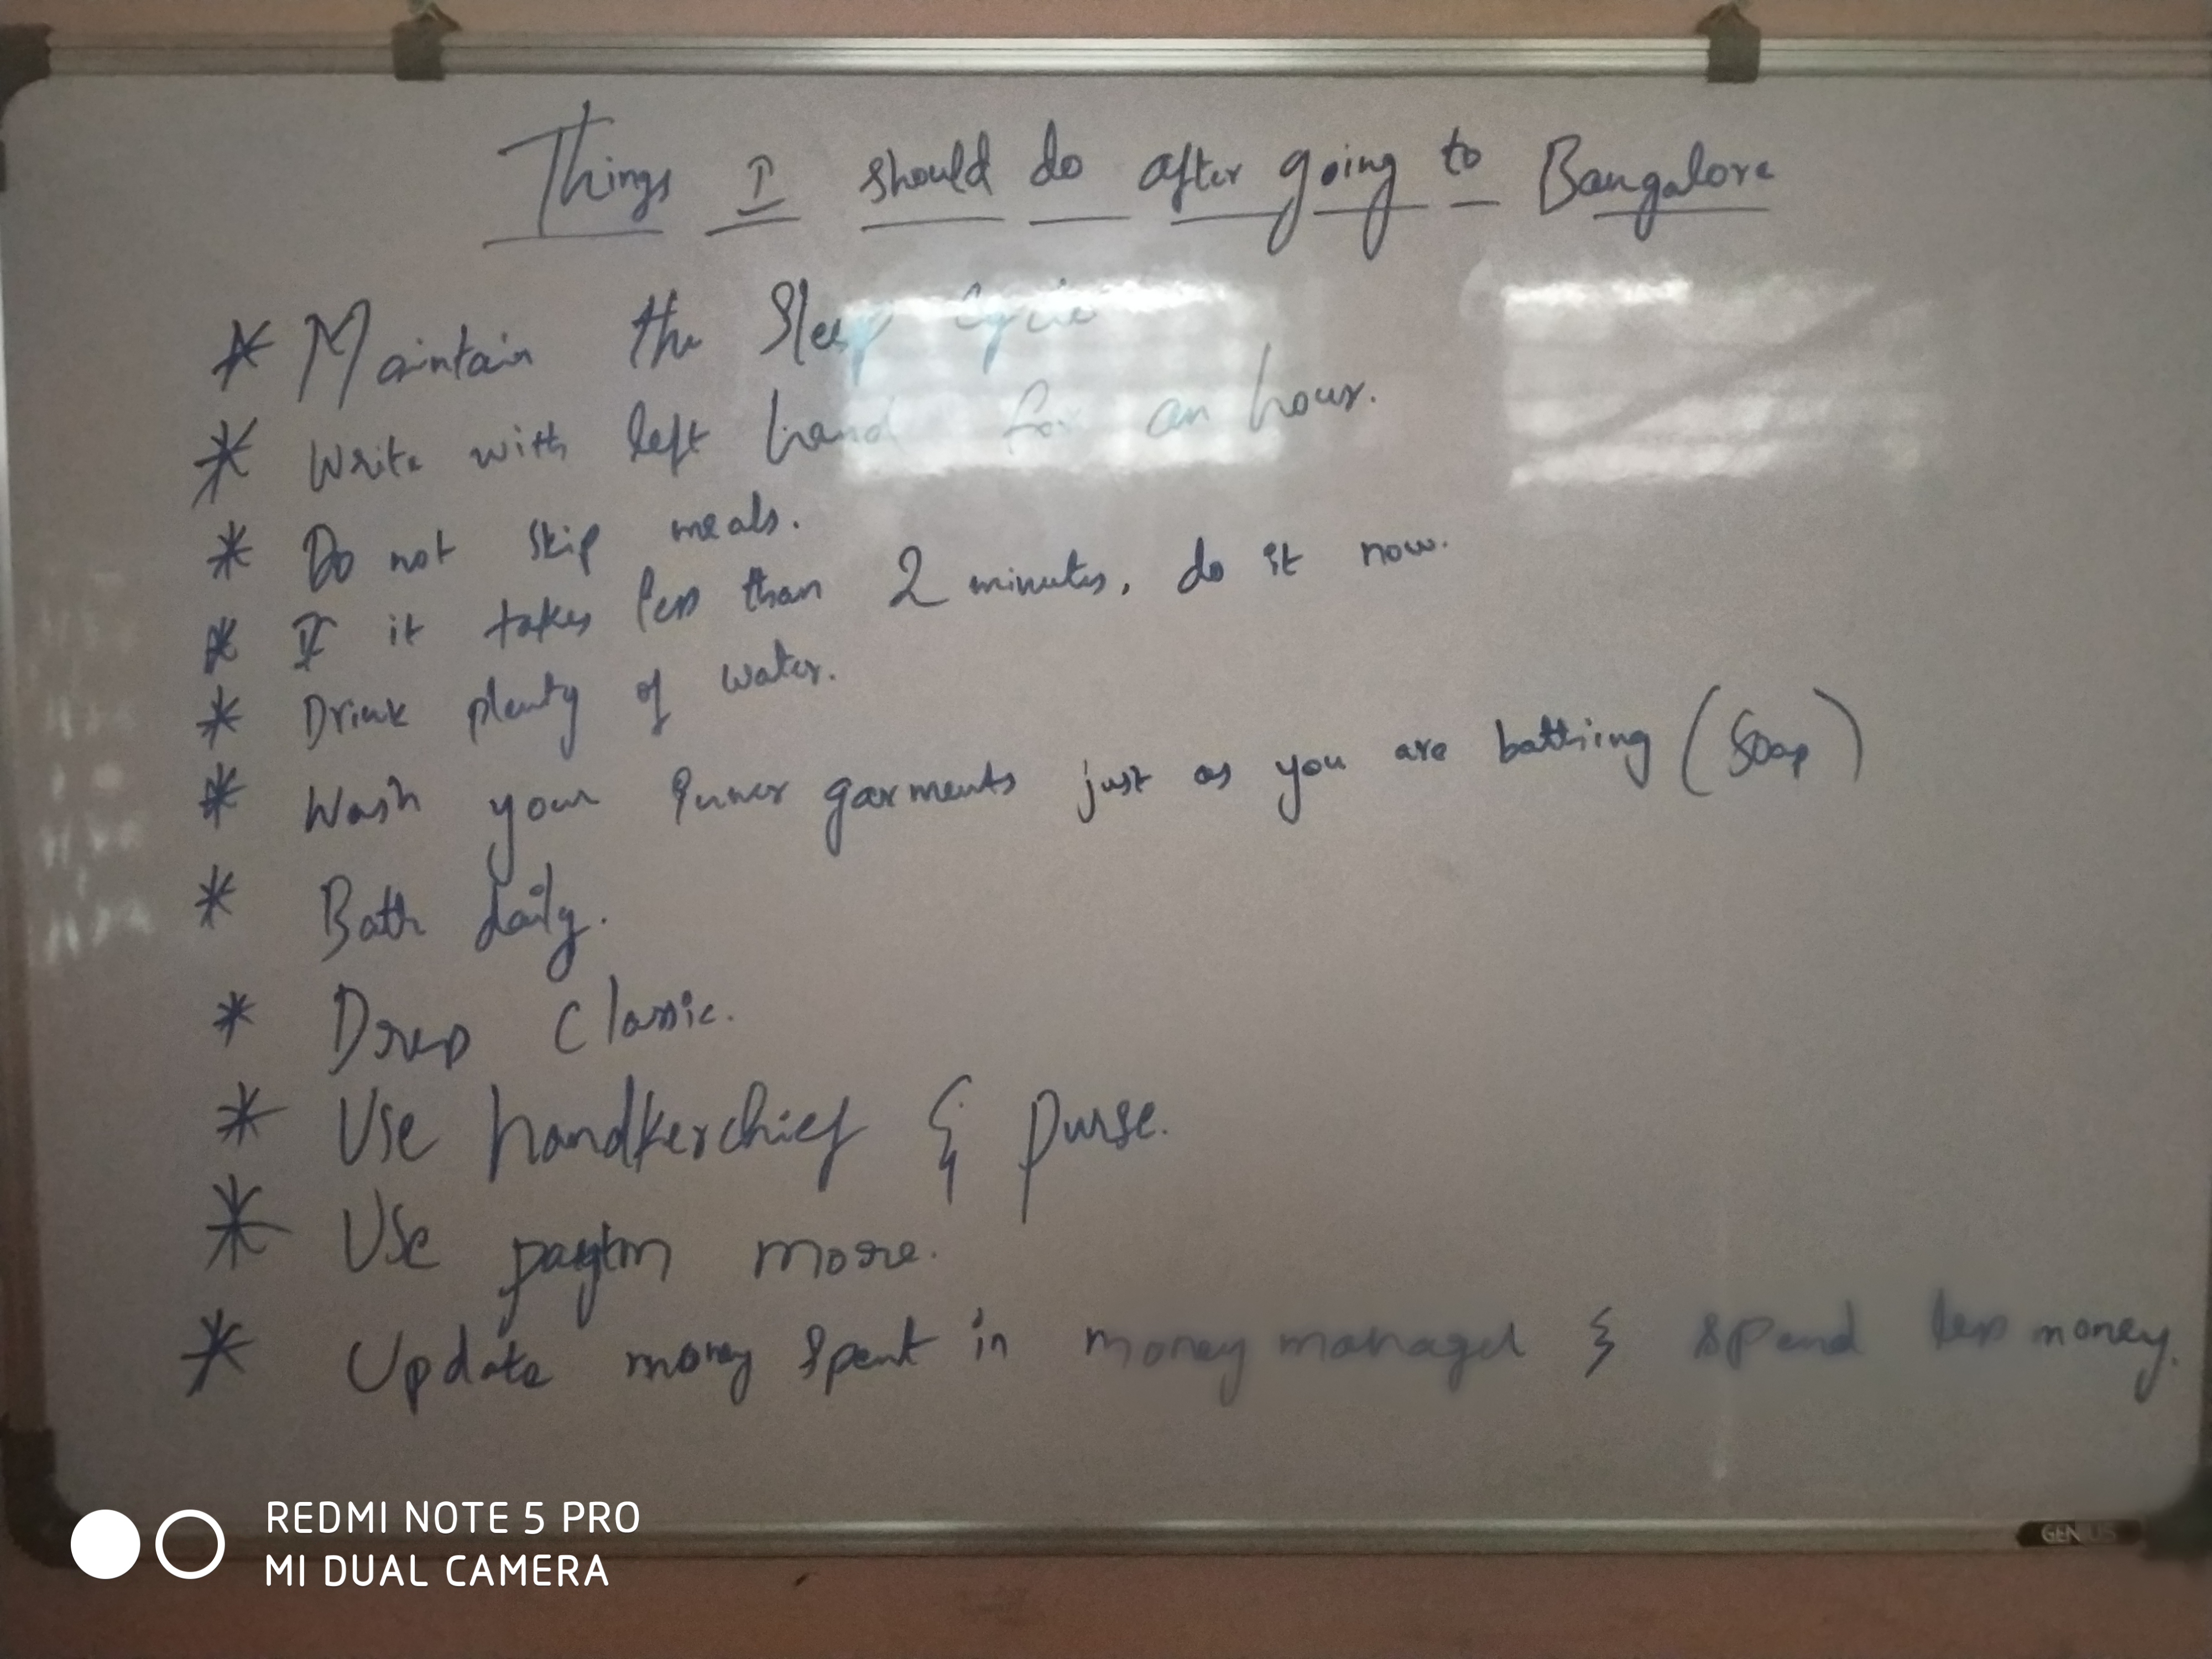 Things I should do after going to Bangalore
* Maintain the Sleep Cycle
* Write with left hand for an hour.
* Do not skip meals.
* If it takes less than 2 minutes, do it now.
* Drink plenty of water.
* Wash your inner garments just as you are bathing (Soap)
* Bath daily.
* Dress Classic.
* Use handkerchief & purse.
* Use paytm more.
* Update money spent in money manager & spend less money.
GENIUS
REDMI NOTE 5 PRO
MI DUAL CAMERA